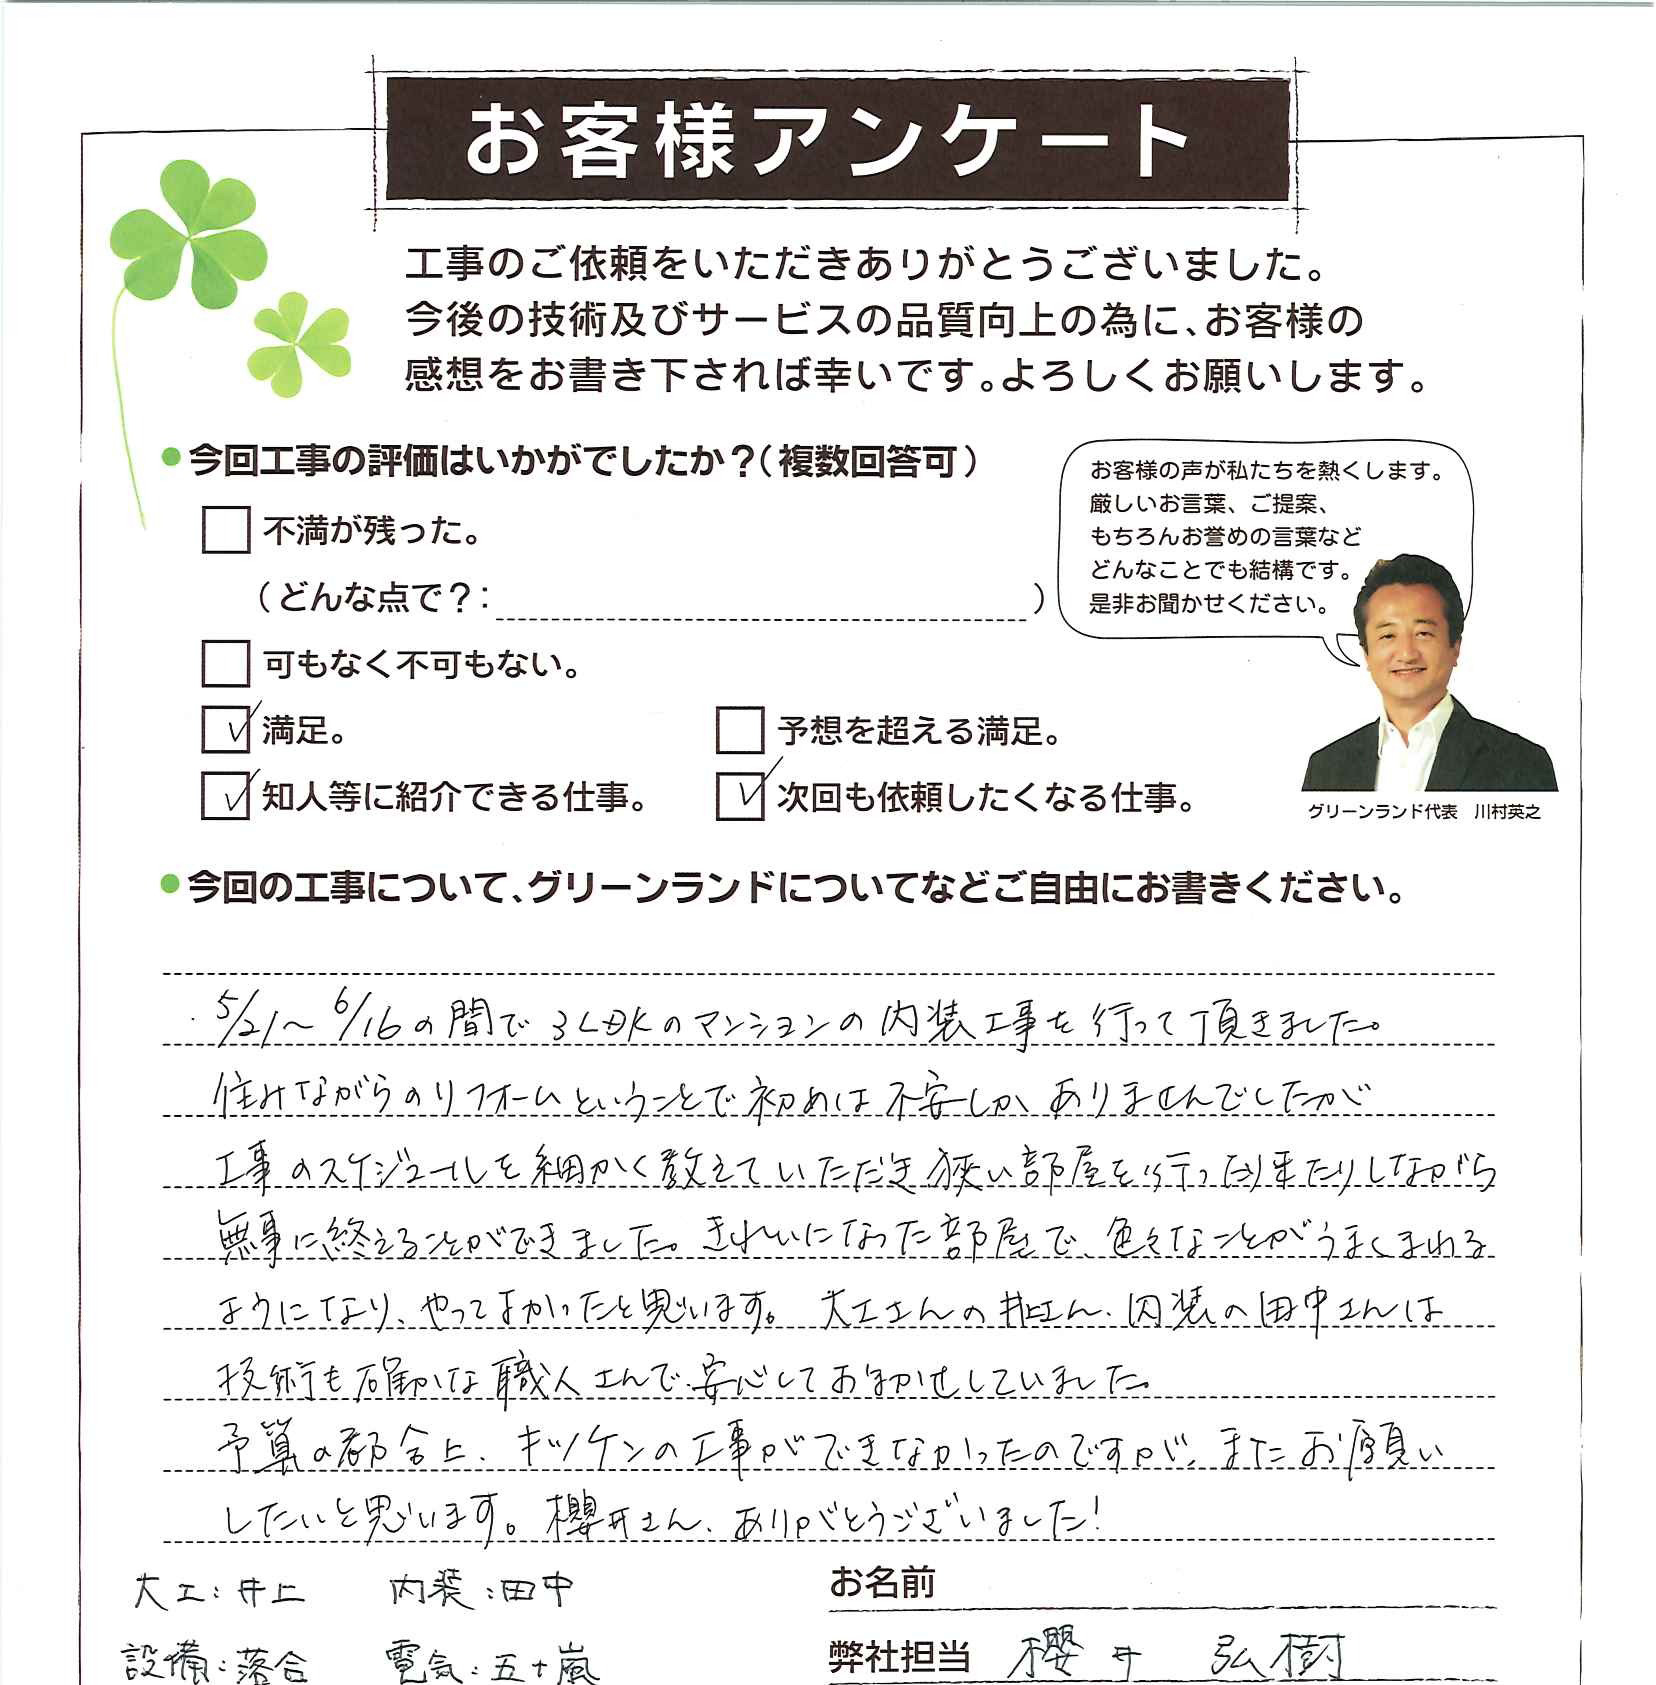 お客様アンケート
工事のご依頼をいただきありがとうございました。
今後の技術及びサービスの品質向上の為に、お客様の
感想をお書き下されば幸いです。よろしくお願いします。
今回工事の評価はいかがでしたか？（複数回答可）
不満が残った。
（どんな点で？：　）
可もなく不可もない。
満足。
予想を超える満足。
知人等に紹介できる仕事。
次回も依頼したくなる仕事。
お客様の声が私たちを熱くします。
厳しいお言葉、ご提案、
もちろんお誉めの言葉など
どんなことでも結構です。
是非お聞かせください。
グリーンランド代表　川村英之
今回の工事について、グリーンランドについてなどご自由にお書きください。
5/21～6/16の間で3LDKのマンションの内装工事を行って頂きました。
住みながらのリフォームということで初めは不安しかありませんでしたが
工事のスケジュールを細かく教えていただき狭い部屋を行ったり来たりしながら
無事に終えることができました。きれいになった部屋で、色々なことがうまくまわる
ようになり、やってよかったと思います。大工さんの井上さん、内装の田中さんは
技術も確かな職人さんで、安心しておまかせしていました。
予算の都合上、キッチンの工事ができなかったのですが、またお願い
したいと思います。櫻井さん、ありがとうございました！
大工：井上　内装：田中
設備：落合　電気：五十嵐
お名前
弊社担当　櫻井　弘樹